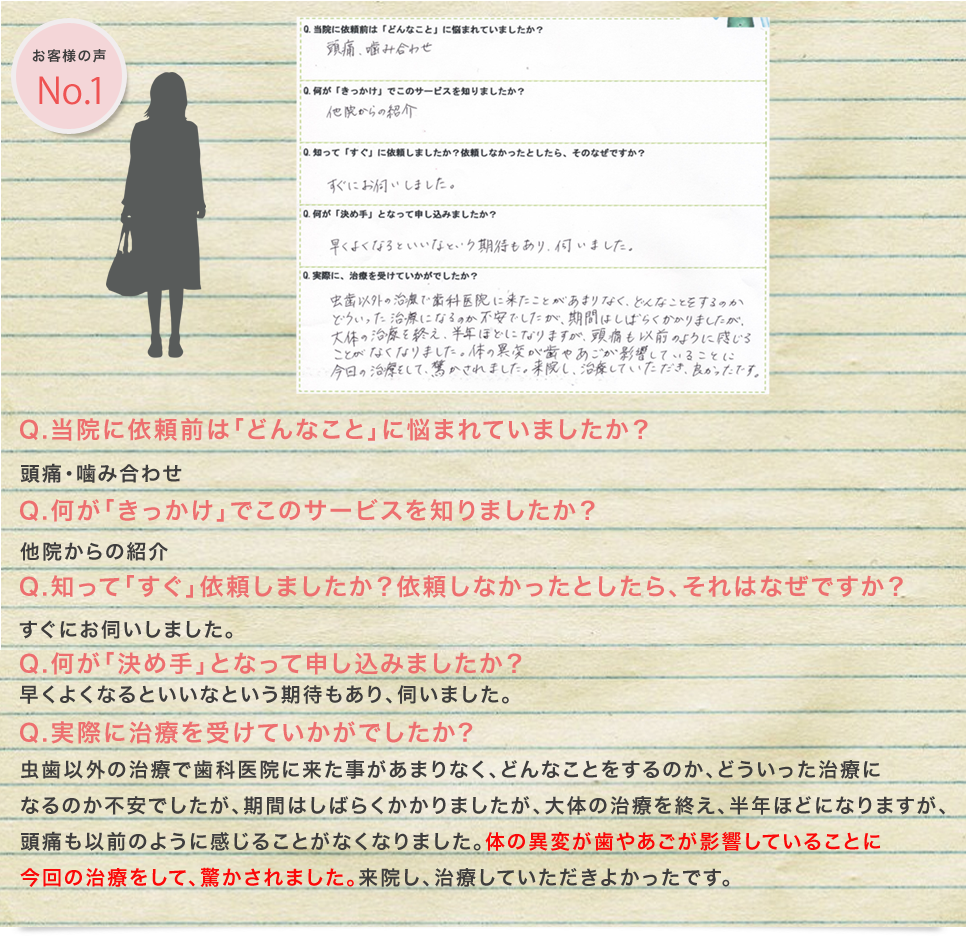 お客様の声
No.1
Q.当院に依頼前は「どんなこと」に悩まれていましたか？
頭痛、噛み合わせ
Q.何が「きっかけ」でこのサービスを知りましたか？
他院からの紹介
Q.知って「すぐ」に依頼しましたか？依頼しなかったとしたら、そのなぜですか？
すぐにお伺いしました。
Q.何が「決め手」となって申し込みましたか？
早くよくなるといいなという期待もあり、伺いました。
Q.実際に、治療を受けていかがでしたか？
虫歯以外の治療で歯科医院に来たことがあまりなく、どんなことをするのか
どういった治療になるのか不安でしたが、期間はしばらくかかりましたが、
大体の治療を終え、半年ほどになりますが、頭痛も以前のように感じる
ことがなくなりました。体の異変が歯やあごが影響していることに
今回の治療をして、驚かされました。来院し、治療していただき、良かったです。
Q.当院に依頼前は「どんなこと」に悩まれていましたか？
頭痛・噛み合わせ
Q.何が「きっかけ」でこのサービスを知りましたか？
他院からの紹介
Q.知って「すぐ」依頼しましたか？依頼しなかったとしたら、それはなぜですか？
すぐにお伺いしました。
Q.何が「決め手」となって申し込みましたか？
早くよくなるといいなという期待もあり、伺いました。
Q.実際に治療を受けていかがでしたか？
虫歯以外の治療で歯科医院に来た事があまりなく、どんなことをするのか、どういった治療に
なるのか不安でしたが、期間はしばらくかかりましたが、大体の治療を終え、半年ほどになりますが、
頭痛も以前のように感じることがなくなりました。体の異変が歯やあごが影響していることに
今回の治療をして、驚かされました。来院し、治療していただきよかったです。